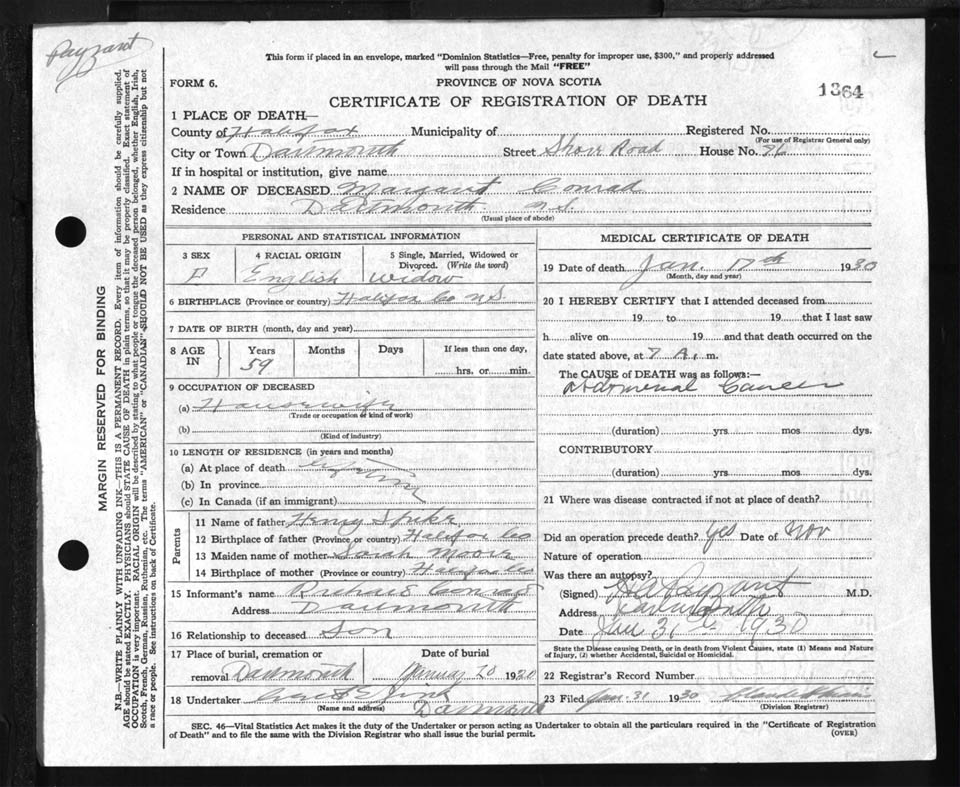 Payzant
This form if placed in an envelope, marked "Dominion Statistics—Free, penalty for improper use, $300," and properly addressed
will pass through the Mail "FREE"
FORM 6.
PROVINCE OF NOVA SCOTIA
1364
CERTIFICATE OF REGISTRATION OF DEATH
1 PLACE OF DEATH—
County of Halifax Municipality of Registered No.
(For use of Registrar General only)
City or Town Dartmouth Street Shore Road House No. 96
If in hospital or institution, give name
2 NAME OF DECEASED Margaret Conrad
Residence Dartmouth N.S.
(Usual place of abode)
PERSONAL AND STATISTICAL INFORMATION
3 SEX 4 RACIAL ORIGIN 5 Single, Married, Widowed or
Divorced. (Write the word)
F English Widow
6 BIRTHPLACE (Province or country) Halifax Co N.S
7 DATE OF BIRTH (month, day and year)
8 AGE IN Years Months Days If less than one day,
59 hrs. or min.
9 OCCUPATION OF DECEASED
(a) Housewife
(Trade or occupation or kind of work)
(b)
(Kind of industry)
10 LENGTH OF RESIDENCE (in years and months)
(a) At place of death
(b) In province
(c) In Canada (if an immigrant)
Parents
11 Name of father Henry Spike
12 Birthplace of father (Province or country) Halifax Co
13 Maiden name of mother Sarah Moore
14 Birthplace of mother (Province or country) Halifax Co
15 Informant's name Conrad
Address Dartmouth
16 Relationship to deceased Son
17 Place of burial, cremation or Date of burial
removal Dartmouth January 20 1930
18 Undertaker
(Name and address) Dartmouth
MEDICAL CERTIFICATE OF DEATH
19 Date of death Jan. 17th 1930
(Month, day and year)
20 I HEREBY CERTIFY that I attended deceased from
19 to 19 that I last saw
h alive on 19 and that death occurred on the
date stated above, at 7 A. m.
The CAUSE of DEATH was as follows:—
Abdominal Cancer
(duration) yrs mos dys.
CONTRIBUTORY
(duration) yrs mos dys.
21 Where was disease contracted if not at place of death?
Did an operation precede death? Yes Date of Nov
Nature of operation
Was there an autopsy?
(Signed) Payzant M.D.
Address Dartmouth
Date Jan 31st 1930
State the Disease causing Death, or in death from Violent Causes, state (1) Means and Nature
of Injury, (2) whether Accidental, Suicidal or Homicidal.
22 Registrar's Record Number
23 Filed Jan. 31 1930
(Division Registrar)
SEC. 46—Vital Statistics Act makes it the duty of the Undertaker or person acting as Undertaker to obtain all the particulars required in the "Certificate of Registration
of Death" and to file the same with the Division Registrar who shall issue the burial permit.
(OVER)
MARGIN RESERVED FOR BINDING
N.B.—WRITE PLAINLY WITH UNFADING INK—THIS IS A PERMANENT RECORD. Every item of information should be carefully supplied.
AGE should be stated EXACTLY. PHYSICIANS should STATE CAUSE OF DEATH in plain terms, so that it may be properly classified. Exact statement of
OCCUPATION is very important. RACIAL ORIGIN will be described by stating to what people or tongue the deceased person belonged, whether English, Irish,
Scotch, French, German, Russian, Ruthenian, etc. The terms "AMERICAN" or "CANADIAN" SHOULD NOT BE USED as they express citizenship but not
a race or people. See instructions on back of Certificate.